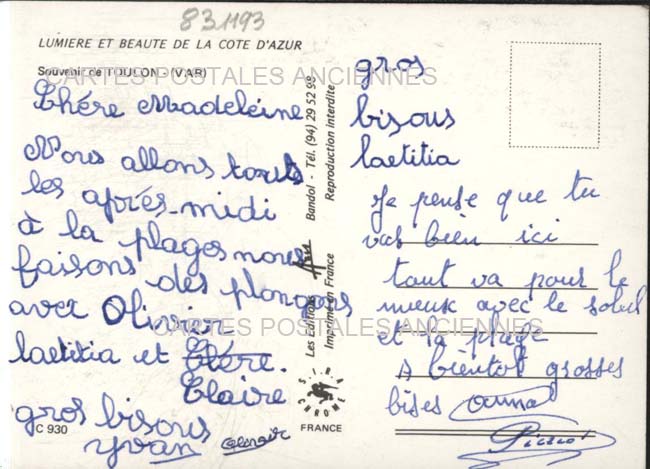 831193
LUMIERE ET BEAUTE DE LA COTE D'AZUR
Souvenir de TOULON - (VAR)
CARTES POSTALES ANCIENNES
Chére Madeleine
Nous allons touts
les après-midi
à la plages nous
faisons des plonges
avec Olivier
CARTES POSTALES ANCIENNES
laetitia et Clére.
Claire
gros bisous
C 930
yvan
Les Editions
Bandol - Tél. (94) 29 52 98
Imprimé en France
Reproduction interdite
SIRA
CHROME
FRANCE
gros
bisous
laetitia
Je pense que tu
vas bien ici
tout va pour le
mieux avec le soleil
et la plage
A bientot grosses
bises